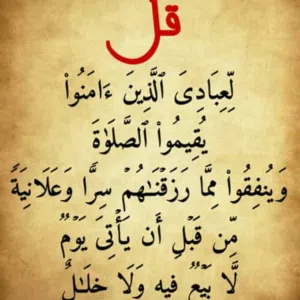 قل
لِّعِبَادِىَ ٱلَّذِينَ ءَامَنُوا۟
يُقِيمُوا۟ ٱلصَّلَوٰةَ
وَيُنفِقُوا۟ مِمَّا رَزَقْنَٰهُمْ سِرًّا وَعَلَانِيَةً
مِّن قَبْلِ أَن يَأْتِىَ يَوْمٌ
لَّا بَيْعٌ فِيهِ وَلَا خِلَٰلٌ